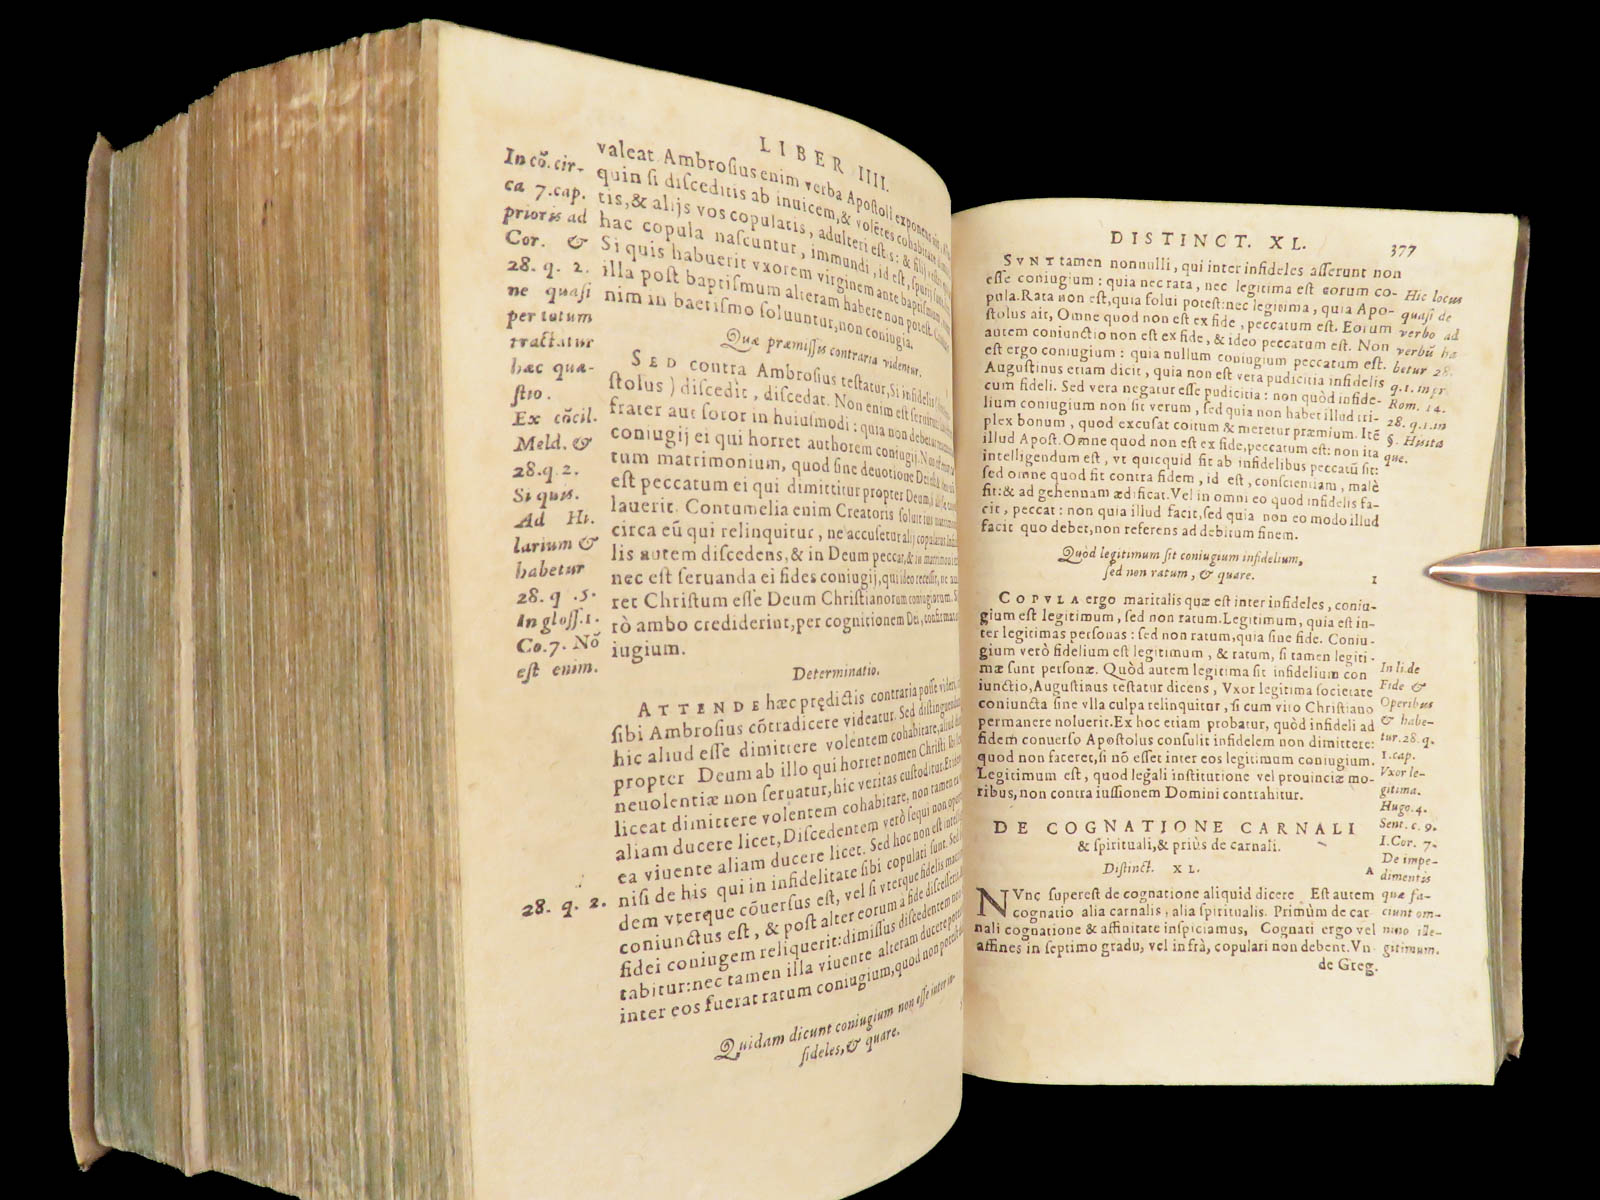 LIBER IIII.
valeat Ambrosius enim verba Apostoli exponens
quin si disceditis ab inuicem, & volẽtes cohabitare
tis, & alijs vos copulatis, adulteri estis: & filij
hac copula nascuntur, immundi, id est, spurij sunt.
Si quis habuerit vxorem virginem ante baptismum
illa post baptismum alteram habere non potest.
nim in baptismo soluuntur, non coniugia.
Quæ præmissis contraria videntur.
SED contra Ambrosius testatur, Si infidelis
stolus) discedit, discedat. Non enim est seruituti
frater aut soror in huiusmodi: quia non debetur
coniugij ei qui horret authorem coniugij. Non
tum matrimonium, quod sine deuotione Dei
est peccatum ei qui dimittitur propter Deum,
lauerit. Contumelia enim Creatoris soluit ius
circa eũ qui relinquitur, ne accusetur alij copulatus.
lis autem discedens, & in Deum peccat, & in
nec est seruanda ei fides coniugij, qui ideo recessit, ne
ret Christum esse Deum Christianorum coniugiorum.
rò ambo crediderint, per cognitionem Dei,
iugium.
Determinatio.
ATTENDE hæc prędictis contraria posse
sibi Ambrosius cõtradicere videatur. Sed distinguendum
hic aliud esse dimittere volentem cohabitare,
propter Deum ab illo qui horret nomen Christi
neuolentiæ non seruatur, hic veritas custoditur.
liceat dimittere volentem cohabitare, non tamen
aliam ducere licet, Discedentem verò sequi non
ea viuente aliam ducere licet. Sed hoc non est
nisi de his qui in infidelitate sibi copulati sunt. Sed
dem vterque cõuersus est, vel si vterque fidelis
coniunctus est, & post alter eorum à fide discesserit,
fidei coniugem reliquerit: dimissus discedentem non
tabitur: nec tamen illa viuente alteram ducere
inter eos fuerat ratum coniugium, quod non
Quidam dicunt coniugium non esse inter in-
fideles, & quare.
In cõ. cir-
ca 7. cap.
prioris ad
Cor. &
28. q. 2.
ne quasi
per totum
tractatur
hæc quæ-
stio.
Ex cõcil.
Meld. &
28. q. 2.
Si quis.
Ad Hi.
larium &
habetur
28. q. 5.
In gloss. 1.
Co. 7. Nõ
est enim.
28. q. 2.
DISTINCT. XL. 377
SVNT tamen nonnulli, qui inter infideles asserunt non
esse coniugium: quia nec rata, nec legitima est eorum co-
pula. Rata non est, quia solui potest: nec legitima, quia Apo-
stolus ait, Omne quod non est ex fide, peccatum est. Eorum
autem coniunctio non est ex fide, & ideo peccatum est. Non
est ergo coniugium: quia nullum coniugium peccatum est.
Augustinus etiam dicit, quia non est vera pudicitia infidelis
cum fideli. Sed vera negatur esse pudicitia: non quòd infide-
lium coniugium non sit verum, sed quia non habet illud tri-
plex bonum, quod excusat coitum & meretur præmium. Itẽ
illud Apost. Omne quod non est ex fide, peccatum est: non ita
intelligendum est, vt quicquid fit ab infidelibus peccatũ sit:
sed omne quod fit contra fidem, id est, conscientiam, malè
fit: & ad gehennam ædificat. Vel in omni eo quod infidelis fa-
cit, peccat: non quia illud facit, sed quia non eo modo illud
facit quo debet, non referens ad debitum finem.
Quòd legitimum sit coniugium infidelium,
sed non ratum, & quare. 1
COPVLA ergo maritalis quæ est inter infideles, coniu-
gium est legitimum, sed non ratum. Legitimum, quia est in-
ter legitimas personas: sed non ratum, quia sine fide. Coniu-
gium verò fidelium est legitimum, & ratum, si tamen legiti-
mæ sunt personæ. Quòd autem legitima sit infidelium con
iunctio, Augustinus testatur dicens, Vxor legitima societate
coniuncta sine vlla culpa relinquitur, si cum viro Christiano
permanere noluerit. Ex hoc etiam probatur, quòd infideli ad
fidem conuerso Apostolus consulit infidelem non dimittere:
quod non faceret, si nõ esset inter eos legitimum coniugium.
Legitimum est, quod legali institutione vel prouinciæ mo-
ribus, non contra iussionem Domini contrahitur.
DE COGNATIONE CARNALI
& spirituali, & priùs de carnali.
Distinct. XL. A
NVnc superest de cognatione aliquid dicere Est autem
cognatio alia carnalis, alia spiritualis. Primùm de car
nali cognatione & affinitate inspiciamus, Cognati ergo vel
affines in septimo gradu, vel infrà, copulari non debent. Vn
de Greg.
Hic locus
quasi de
verbo ad
verbũ ha
betur 28.
q. 1. in pr.
Rom. 14.
28. q. 1. in
§. Huita
que.
In li. de
Fide &
Operibus
& habe-
tur. 28. q.
1. cap.
Vxor le-
gitima.
Hugo. 4.
Sent. c. 9.
1. Cor. 7.
De impe-
dimentis
quæ fa-
ciunt om-
nino ille-
gitimum.